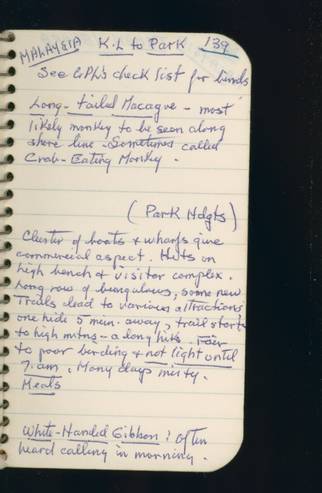 MALAYSIA K.L to Park 139
See check list for birds
Long-tailed Macaque - most
likely monkey to be seen along
shore line. Sometimes called
Crab-Eating Monkey.
(Park Hdqts)
Cluster of boats & wharfs give
commercial aspect. Huts on
high bench & visitor complex.
Long row of bungalows, some new
Trails lead to various attractions
one hide 5 min. away, trail starts
to high mtns - a long hike. Fair
to poor birding & not light until
7 am. Many days misty.
Meals
White-Handed Gibbon: often
heard calling in morning.